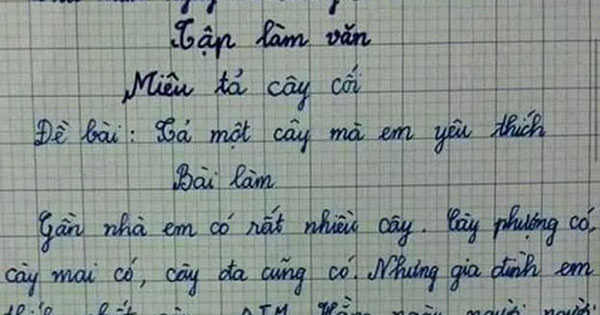 Tập làm văn
Miêu tả cây cối
Đề bài: Tả một cây mà em yêu thích
Bài làm
Gần nhà em có rất nhiều cây. Cây phượng có,
cây mai có, cây đa cũng có. Nhưng gia đình em
ATM. Hằng ngày người người